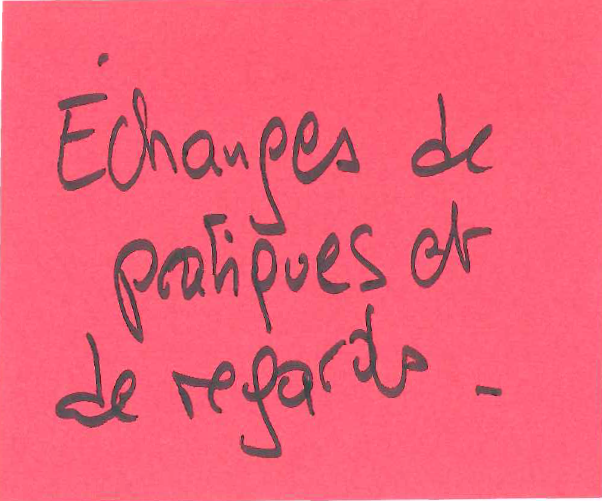 Échanges de
pratiques et
de regards -